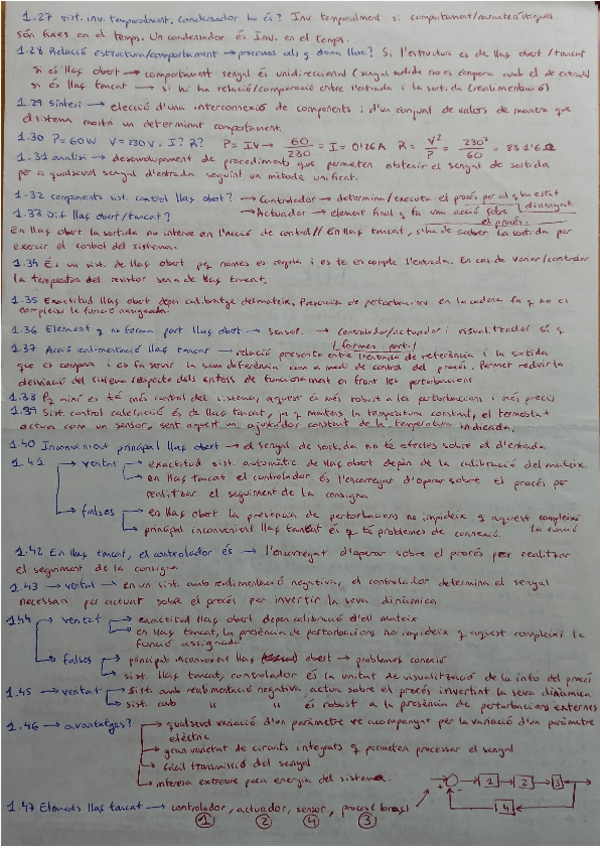 1.27 sist. inv. temporalment. condensador ho és? Inv. temporalment si comportament/característiques
són fixes en el temps. Un condensador és Inv. en el temps.
1.28 Relació estructura/comportament → processos als q dona lloc? Si l'estructura es de llaç obert/tancat
si és llaç obert → comportament senyal és unidireccional (senyal sortida no es compara amb el de entrada)
si és llaç tancat → si hi ha relació/comparació entre l'entrada i la sortida (realimentació)
1.29 Síntesi → elecció d'una interconnexió de components i d'un conjunt de valors de manera que
el sistema mostri un determinat comportament.
1.30 P=60W V=230V. I? R? P=IV → 60/230 = I = 0'26A R = V²/P = 230²/60 = 881'6 Ω
1.31 analisi → desenvolupament de procediments que permeten obtenir el senyal de sortida
per a qualsevol senyal d'entrada seguint un mètode unificat.
1.32 components sist. control llaç obert? → Controlador → determina/executa el procés per al q ha estat dissenyat.
→ Actuador → element final q fa una acció sobre el procés.
1.33 Dif llaç obert/tancat?
En llaç obert la sortida no interve en l'acció de control // En llaç tancat, s'ha de saber la sortida per
exercir el control del sistema.
1.34 És un sist. de llaç obert pq només es regula i es te en compte l'entrada. En cas de variar/controlar
la temperatura del resistor seria de llaç tancat.
1.35 Exactitud llaç obert depen calibratge del mateix. Presencia de pertorbacions en la cadena fa q no es
compleixi la funció assignada.
1.36 Element q no forma part llaç obert → sensor. → controlador/actuador i visualitzador sí q
(formen part)
1.37 Acció realimentació llaç tancat → relació prescrita entre l'entrada de referència i la sortida
que es compara i es fa servir la seva diferència com a medi de control del procés. Permet reduir la
desviació del sistema respecte dels criteris de funcionament en front les pertorbacions
1.38 Pq així es té més control del sistema, aquest és més robust a les pertorbacions i més precís
1.39 Sist. control calefacció és de llaç tancat, ja q mantens la temperatura constant, el termostat
actua com un sensor, sent aquest un ajustador constant de la temperatura indicada.
1.40 Inconvenient principal llaç obert → el senyal de sortida no té efectes sobre el d'entrada.
1.41 → veritat → exactitud sist. automàtic de llaç obert depèn de la calibració del mateix.
→ en llaç tancat el controlador és l'encarregat d'operar sobre el procés per
realitzar el seguiment de la consigna
→ falses → en llaç obert la presencia de pertorbacions no impideix q aquest compleixi
la funció
→ principal inconvenient llaç tancat és q té problemes de connexió.
1.42 En llaç tancat, el controlador és → l'encarregat d'operar sobre el procés per realitzar
el seguiment de la consigna
1.43 → veritat → en un sist. amb realimentació negativa, el controlador determina el senyal
necessari per actuar sobre el procés per invertir la seva dinàmica
1.44 → veritat → exactitud llaç obert depen calibració d'ell mateix
→ en llaç tancat, la presència de pertorbacions no impideix q aquest compleixi la
funció assignada
→ falses → principal inconvenient llaç obert → problemes conexió
→ sist. llaç tancat, controlador és la unitat de visualització de la info del procés
1.45 → veritat → Sist. amb realimentació negativa actua sobre el procés invertint la seva dinàmica
→ sist. amb " " és robust a la presència de pertorbacions externes
1.46 → avantatges? → qualsevol variació d'un paràmetre ve acompanyat per la variació d'un paràmetre
elèctric
→ gran varietat de circuits integrats q permeten processar el senyal
→ fàcil transmissió del senyal
→ interesa extreure poca energia del sistema.
1.47 Elements llaç tancat → controlador, actuador, sensor, procés (braç)
1 2 4 3
1 2 3
4